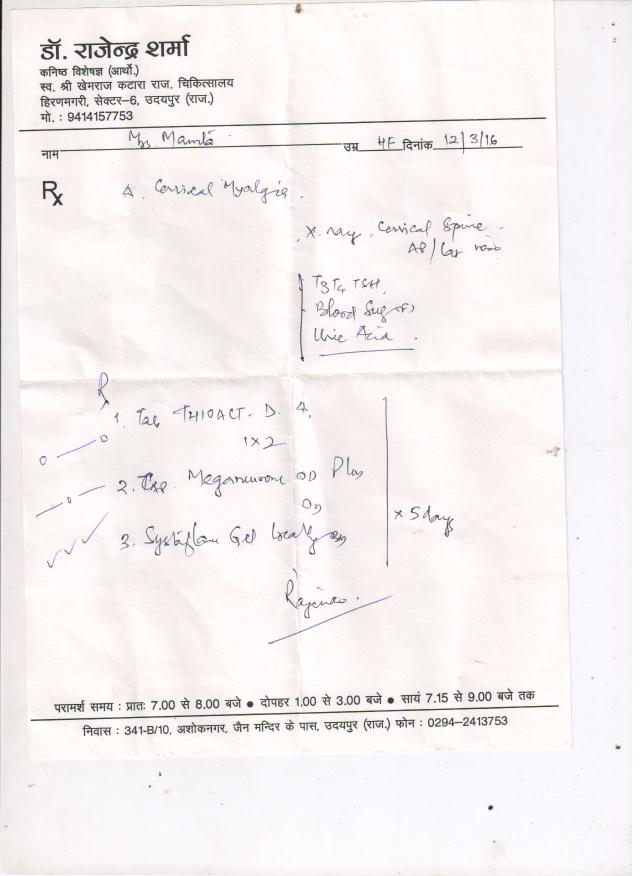 डॉ. राजेन्द्र शर्मा
कनिष्ठ विशेषज्ञ (आर्थो.)
स्व. श्री खेमराज कटारा राज. चिकित्सालय
हिरणमगरी, सेक्टर–6, उदयपुर (राज.)
मो. : 9414157753
नाम Mrs Mamta उम्र दिनांक 12/3/16
Rx Δ. Cervical Myalgia.
X-ray. Cervical Spine.
AP/Lat
T3 T4 TSH,
Blood Sugar
Uric Acid.
R
1. Tab THIOACT-D. 4,
1 x 2
2. Cap. Meganeuron OD Plus
OD
x 5 days
3. Systaflam Gel Locally
परामर्श समय : प्रातः 7.00 से 8.00 बजे ● दोपहर 1.00 से 3.00 बजे ● सायं 7.15 से 9.00 बजे तक
निवास : 341-B/10, अशोकनगर, जैन मन्दिर के पास, उदयपुर (राज.) फोन : 0294–2413753